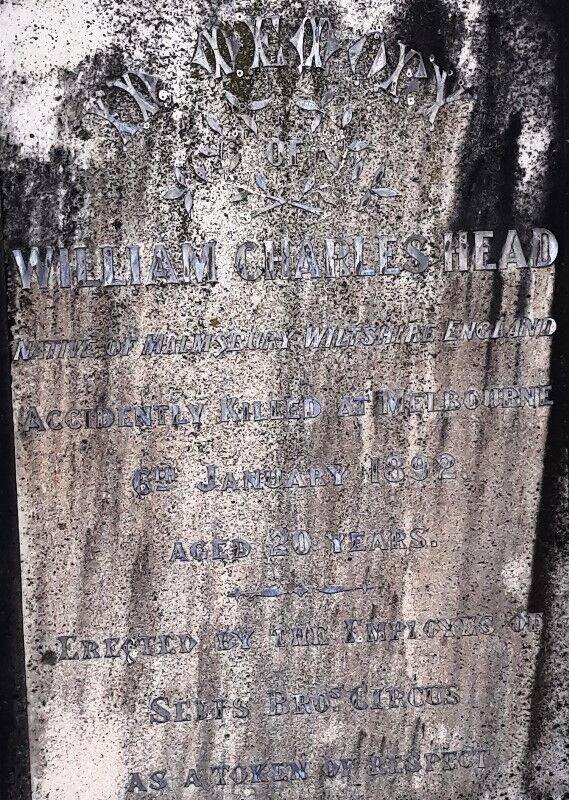 IN MEMORY
OF
WILLIAM CHARLES HEAD
NATIVE OF MALMSBURY WILTSHIRE ENGLAND
ACCIDENTLY KILLED AT MELBOURNE
6TH JANUARY 1892.
AGED 20 YEARS.
ERECTED BY THE EMPLOYES OF
SELLS BROS CIRCUS
AS A TOKEN OF RESPECT